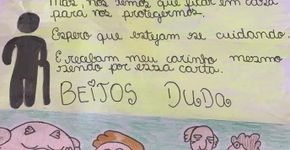 Mas, nós temos que ficar em casa
para nos protegermos.
Espero que estejam se cuidando.
E recebam meu carinho mesmo
sendo por essa carta.
BEIJOS DUDA